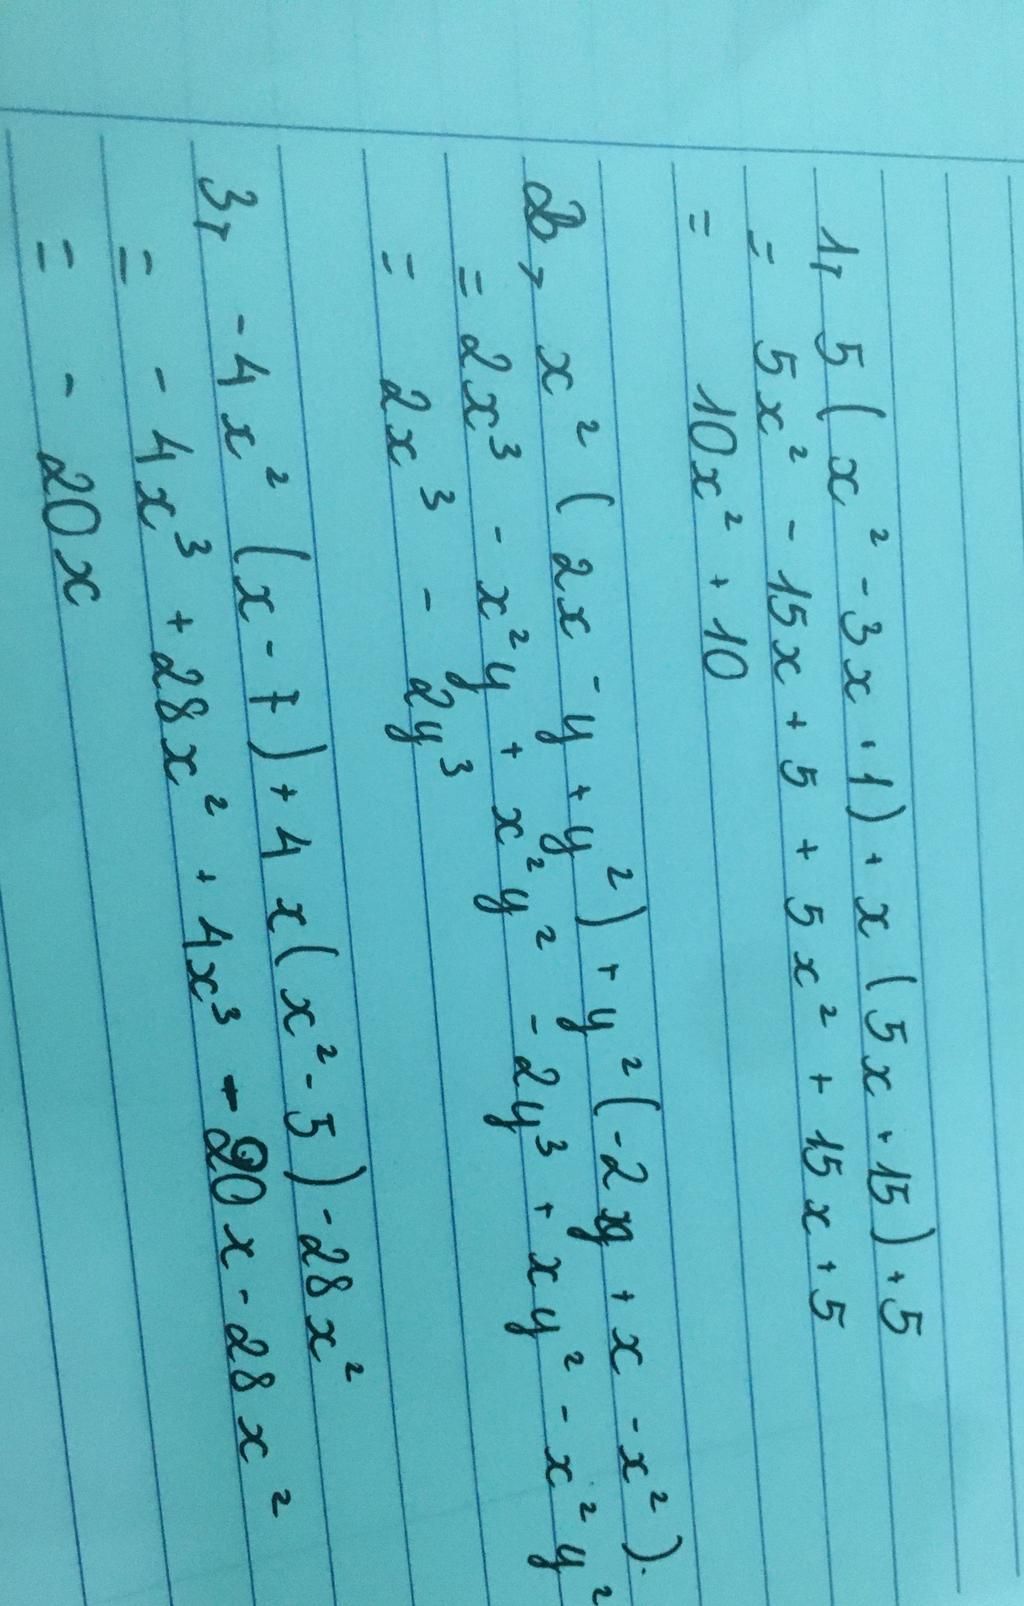 1, 5(x² - 3x + 1) + x(5x + 15) + 5
= 5x² - 15x + 5 + 5x² + 15x + 5
= 10x² + 10
2, x²(2x - y + y²) + y²(-2y + x - x²).
= 2x³ - x²y + x²y² - 2y³ + xy² - x²y²
= 2x³ - 2y³
3, -4x²(x - 7) + 4x(x² - 5) - 28x²
= -4x³ + 28x² + 4x³ - 20x - 28x²
= -20x